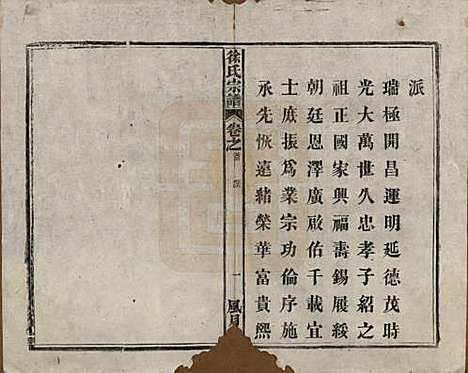 派
瑞極開昌運明延德茂時
光大萬世久忠孝子紹之
祖正國家興福壽錫展綏
朝廷恩澤廣啟佑千載宜
士庶振爲業宗功倫序施
承先恢遠緒榮華富貴熙
徐氏宗譜 卷之首 派 一